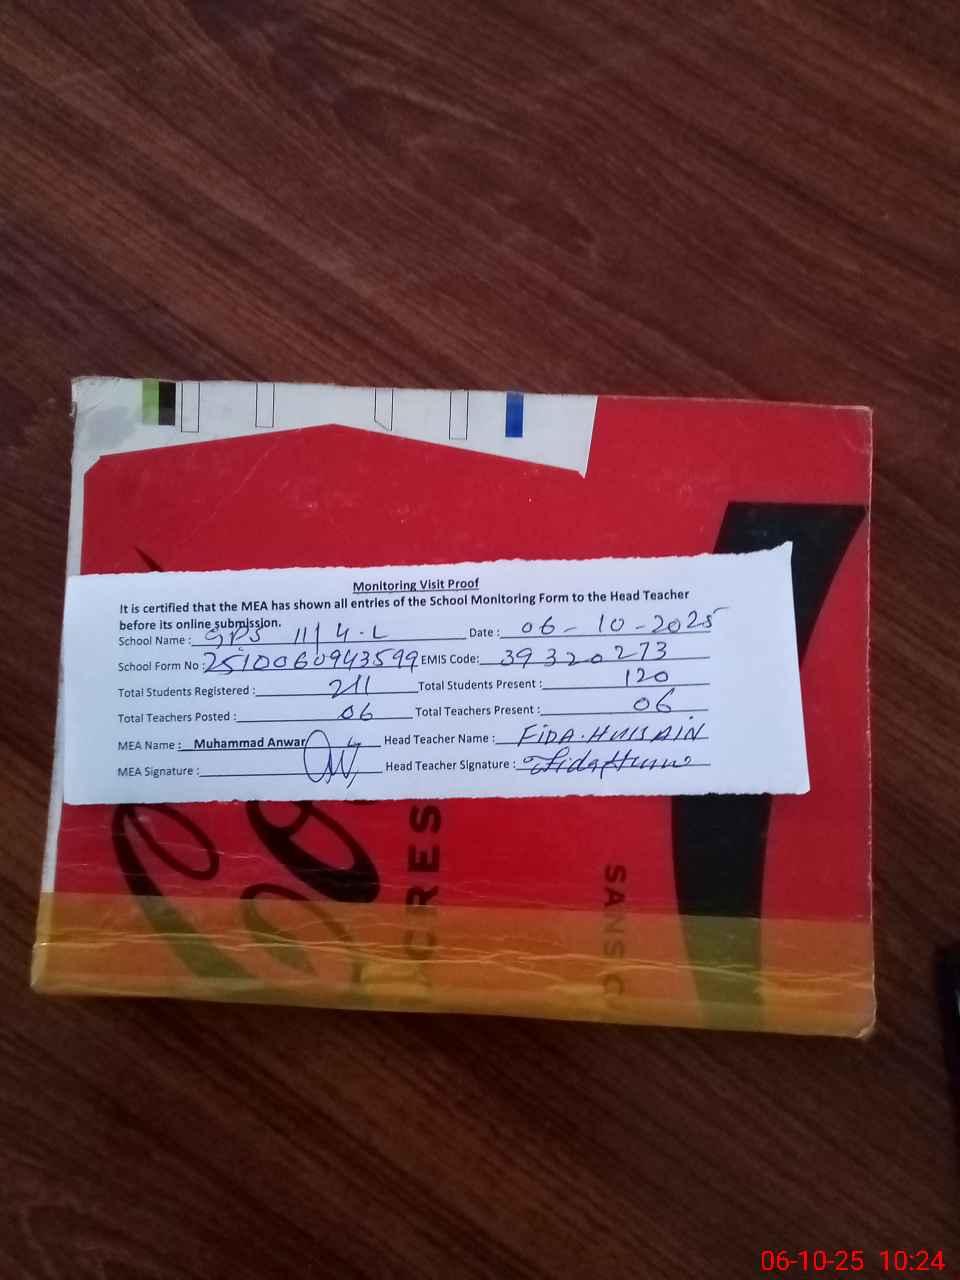 Monitoring Visit Proof
It is certified that the MEA has shown all entries of the School Monitoring Form to the Head Teacher
before its online submission.
School Name : GPS 11/4.L Date : 06-10-2025
School Form No : 2510060943599 EMIS Code: 39320273
Total Students Registered : 211 Total Students Present : 120
Total Teachers Posted : 06 Total Teachers Present : 06
MEA Name : Muhammad Anwar Head Teacher Name : FIDA.HUSSAIN
MEA Signature : Head Teacher Signature : Fida Hussain
CRES
SANS C
06-10-25 10:24